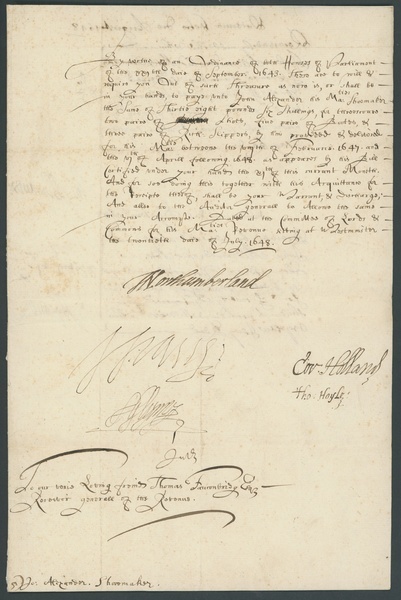 By vertue of an Ordinance of both Houses of Parliament
of the xxjth daie of September. 1643. These are to will &
require you Out of such Threasure as now is, or shall be
in Your hands, to pay unto John Alexander his Mats Shoomaker
the Sume of Thirtie eight poundes six Shillings, for
two paires of Boots, paires of &
three paires of Slippers, by him provided & delivered
for his Mats betweene the of Februarie. 1647. and
the of Aprill following 1648. as appeares by his Bill
Certified under Your hands the of this current Moneth.
And for soe doing this together with his Acquittance for
the Receipte thereof, shall be your Warrant, & discharge;
And alsoe to the Auditor generall to Allowe the same
in Your Accompte. Dated at the Committee of Lords &
Commons for his Mats Revenue sitting at Westminster
the twentieth daie of July. 1648.
Northumberland
Cor: Holland
Tho: Hoyle:
To our verie Loving friend Thomas Fauconbridge Esqr
Receiver generall of the Revenue.
Jo: Alexander. Shoomaker.